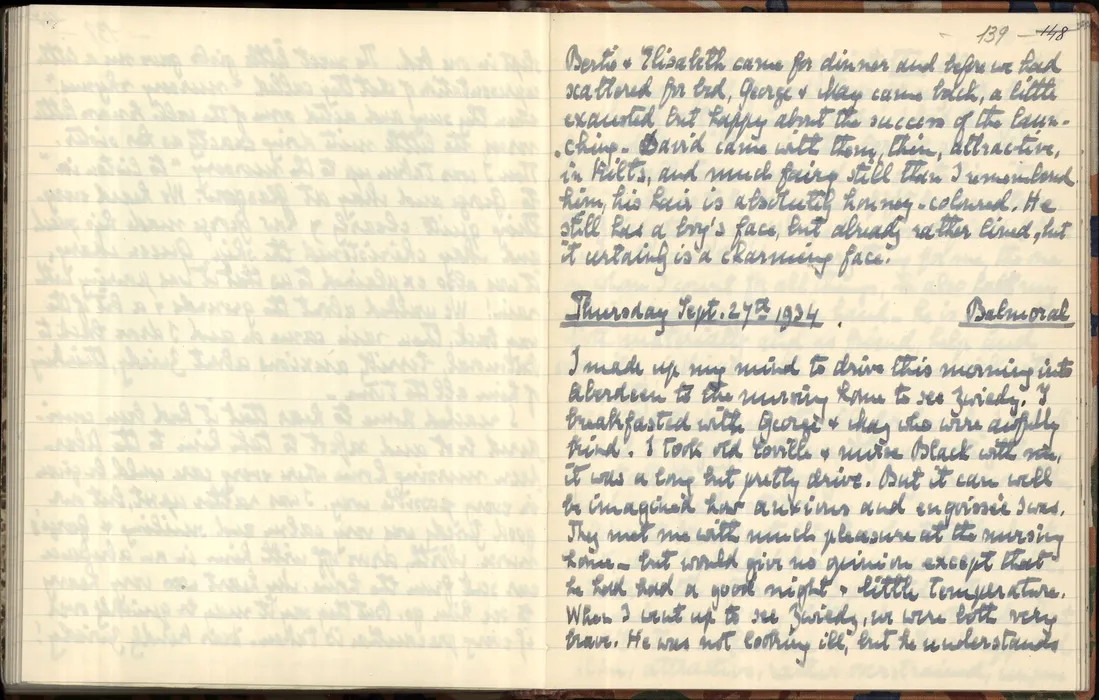 - 139 - 148
Bertie & Elisabeth came for dinner and before we had
scattered for bed, George & May came back, a little
exausted but happy about the success of the laun-
ching. David came with them, thin, attractive,
in Kilts, and much fairer still than I remembered
him, his hair is absolutely honney-coloured. He
still has a boy's face, but already rather lined, but
it certainly is a charming face.
Thursday Sept. 27th 1934. Balmoral
I made up my mind to drive this morning into
Aberdeen to the nursing home to see Zwiedy. I
breakfasted with George & May who were awfully
kind. I took old & nurse Black with me,
it was a long but pretty drive. But it can well
be imagined how anxious and engoissée I was.
They met me with much pleasure at the nursing
home - but would give no opinion except that
he had had a good night & little temperature.
When I went up to see Zwiedy, we were both very
brave. He was not looking ill, but he understands